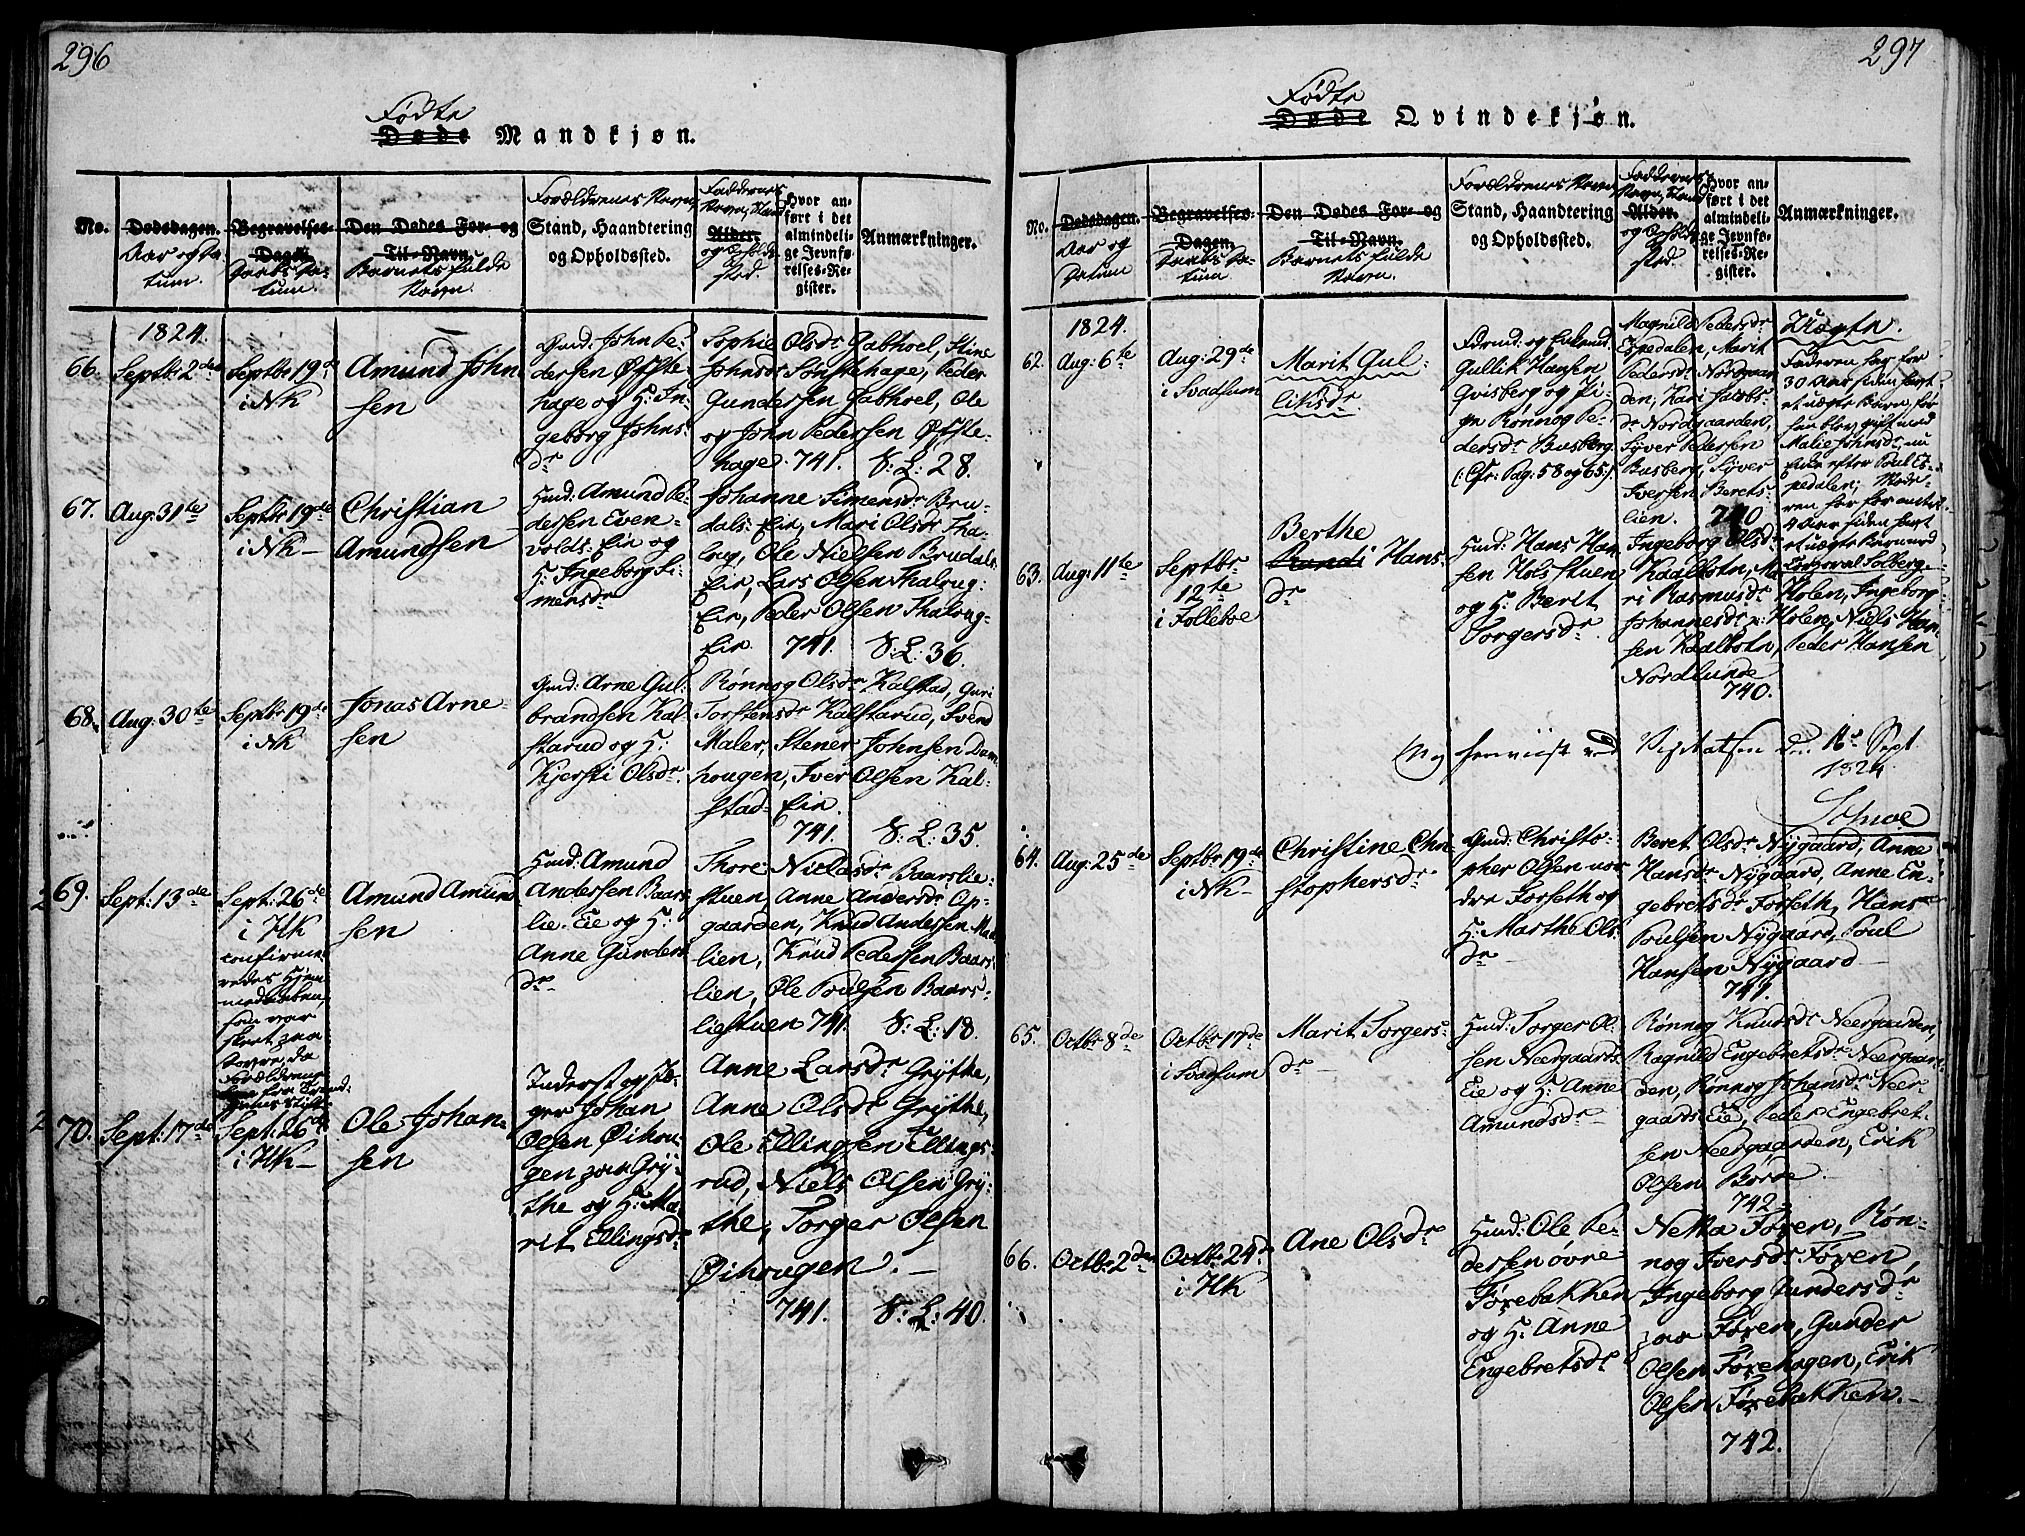 296
Fødte
Døde Mandkjøn.
No.
Dødsdagen.
Aar og Da-
tum.
Begravelses-
Dagen.
Daabs Da-
tum.
Den Dødes For- og
Til-Navn.
Barnets fulde
Navn.
Forældrenes Navn,
Stand, Haandtering
og Opholdssted.
Faddernes
Navn, Stand
Alder.
og Opholds
sted.
Hvor an-
ført i det
almindeli-
ge Jevnfø-
relses-Re-
gister.
Anmærkninger.
1824.
66.
Septbr 2den
Septbr 19de
i NK
Amund John
sen
Gmd: John Pe-
dersen Øfste-
hage og H: In-
geborg Johns-
dr
Sophie Olsdr Gabhoel, Stine
Johnsdr Sønstehage, Peder
Gundersen Gabhoel, Ole
og John Pedersen Øfste-
hage. 741. V: L: 28.
67.
Aug: 31te
Septbr 19de
i NK
Christian
Amundsen
Hmd: Amund Pe-
dersen Even-
volds: Eie og
H: Ingeborg Si-
mensdr
Johanne Simensdr Bru-
dals: Eie, Mari Olsdr Tha-
lrug, Ole Nielsen Brudals
Eie, Lars Olsen Thalrug-
Eie, Peder Olsen Thalrug-
Eie. 741. V: L: 36.
68.
Aug: 30te
Septbr 19de
i NK
Jonas Arne-
sen
Gmd: Arne Gul-
brandsen Kal-
starud og H:
Kjersti Olsdr
Rønnog Olsdr Kalstad, Guri
Torstensdr Kalstarud, Svend
Maler, Stener Johnsen Dam
hougen, Iver Olsen Kal-
stad- Eie.
741. V: L: 35.
69.
Sept: 13de
Sept: 26de
i HK
confirme-
redes Hjem-
medaaben,
som var
skeet paa
Forældrene
Amund Amund
sen
Hmd: Amund
Andersen Baars-
lie- Eie og H:
Anne Gunders
dr
Thore Nielsdr Baarslie-
stuen, Anne Andersdr Op-
gaarden, Knud Andersen
lien, Knud Pedersen Baars-
lien, Ole Poulsen Baars-
liestuen 741. V: L: 18.
70.
Sept: 17de
Sept: 26de
i HK
Ole Johan-
sen
Inderst og
Johan
Olsen Øihou-
gen paa Gry-
the og H: Ma-
rit Ellingsdr
Anne Larsdr Grythe,
Anne Olsdr Grythe,
Ole Ellingsen Ellings-
rud, Niels Olsen Gry-
the, Torger Olsen
Øihougen.
741. V: L: 40.
297
Fødte
Døde Qvindekjøn.
No.
Dødsdagen.
Aar og
Datum
Begravelses-
Dagen.
Daabs Da-
tum
Den Dødes For- og
Til-Navn.
Barnets fulde
Navn.
Forældrenes Navn,
Stand, Haandtering
og Opholdssted.
Faddernes
Navn, Stand
Alder.
og Opholds
sted.
Hvor an-
ført i det
almindeli-
ge Jevnfø-
relses-Re-
gister.
Anmærkninger.
1824.
62.
Aug: 6te
Aug: 29de
i Svadsum
Marit Gul-
liksdr
Gullik Hansen
Qvisberg og Pi-
ge Rønnog Pe-
dersdr Busberg.
(: Cfr: Pag: 58 og 65:)
Magnild Pedersdr
Espedalen, Marit
Pedersdr Nordgaar
den, Kari Jacobs-
dr Nordgaarden,
Syver Pedersen
Busberg, Syver
Iversen Berets-
lien. 740
Uægte.
Faderen har for
30 Aar siden havt
et uægte Barn, før
han blev gift med
Malie Johnsdr, nu
Enke efter Poul Es-
pedalen; Mode-
ren har for omtrent
4 Aar siden havt
et uægte Barn med
Corporal Solberg.
63.
Aug: 11te
Septbr
12te
i Follebue
Berthe
Randi Hans-
dr
Hmd: Hans Han-
sen Holsstuen
og H: Berit
Torgersdr
Ingeborg Olsdr
Kaalbotn, Ma-
ri Rasmusdr Holen, Ingeborg
Johannesdr Holen, Niels Han-
sen Kaalbotn, Peder Hansen
Nordlunde
740.
Sept.
1824
64.
Aug: 25de
Septbr 19de
i NK
Christine Chri
stophersdr
Gmd: Christo-
pher Olsen nor-
dre Forseth og
H: Marthe Ols-
dr
Beret Olsdr Nygaard, Anne
Hansdr Nygaard, Anne En-
gebretsdr Forseth, Hans
Poulsen Nygaard, Poul
Hansen Nygaard
741.
65.
Octbr 8de
Octbr 17de
i Svadsum
Marit Torgers-
dr
Hmd: Torger Ol-
sen Neergaards
Eie og H: Anne
Amundsdr
Rønnog Knudsdr Neergaarden,
Ragnild Engebretsdr Neergaar-
den, Rønnog Johansdr Neer-
gaards Eie, Peder Engebret-
sen Neergaarden, Erik
Olsen Børde.
742.
66.
Octbr 2den
Octbr 24de
i HK
Ane Olsdr
Hmd: Ole Pe-
dersen øvre
Førebakken
og H: Anne
Engebretsdr
Netta Fören, Røn-
nog Iversdr Fören,
Ingeborg Gundersdr
paa Føren, Gunder
Olsen Førehagen, Erik
Olsen Førebakken.
742.